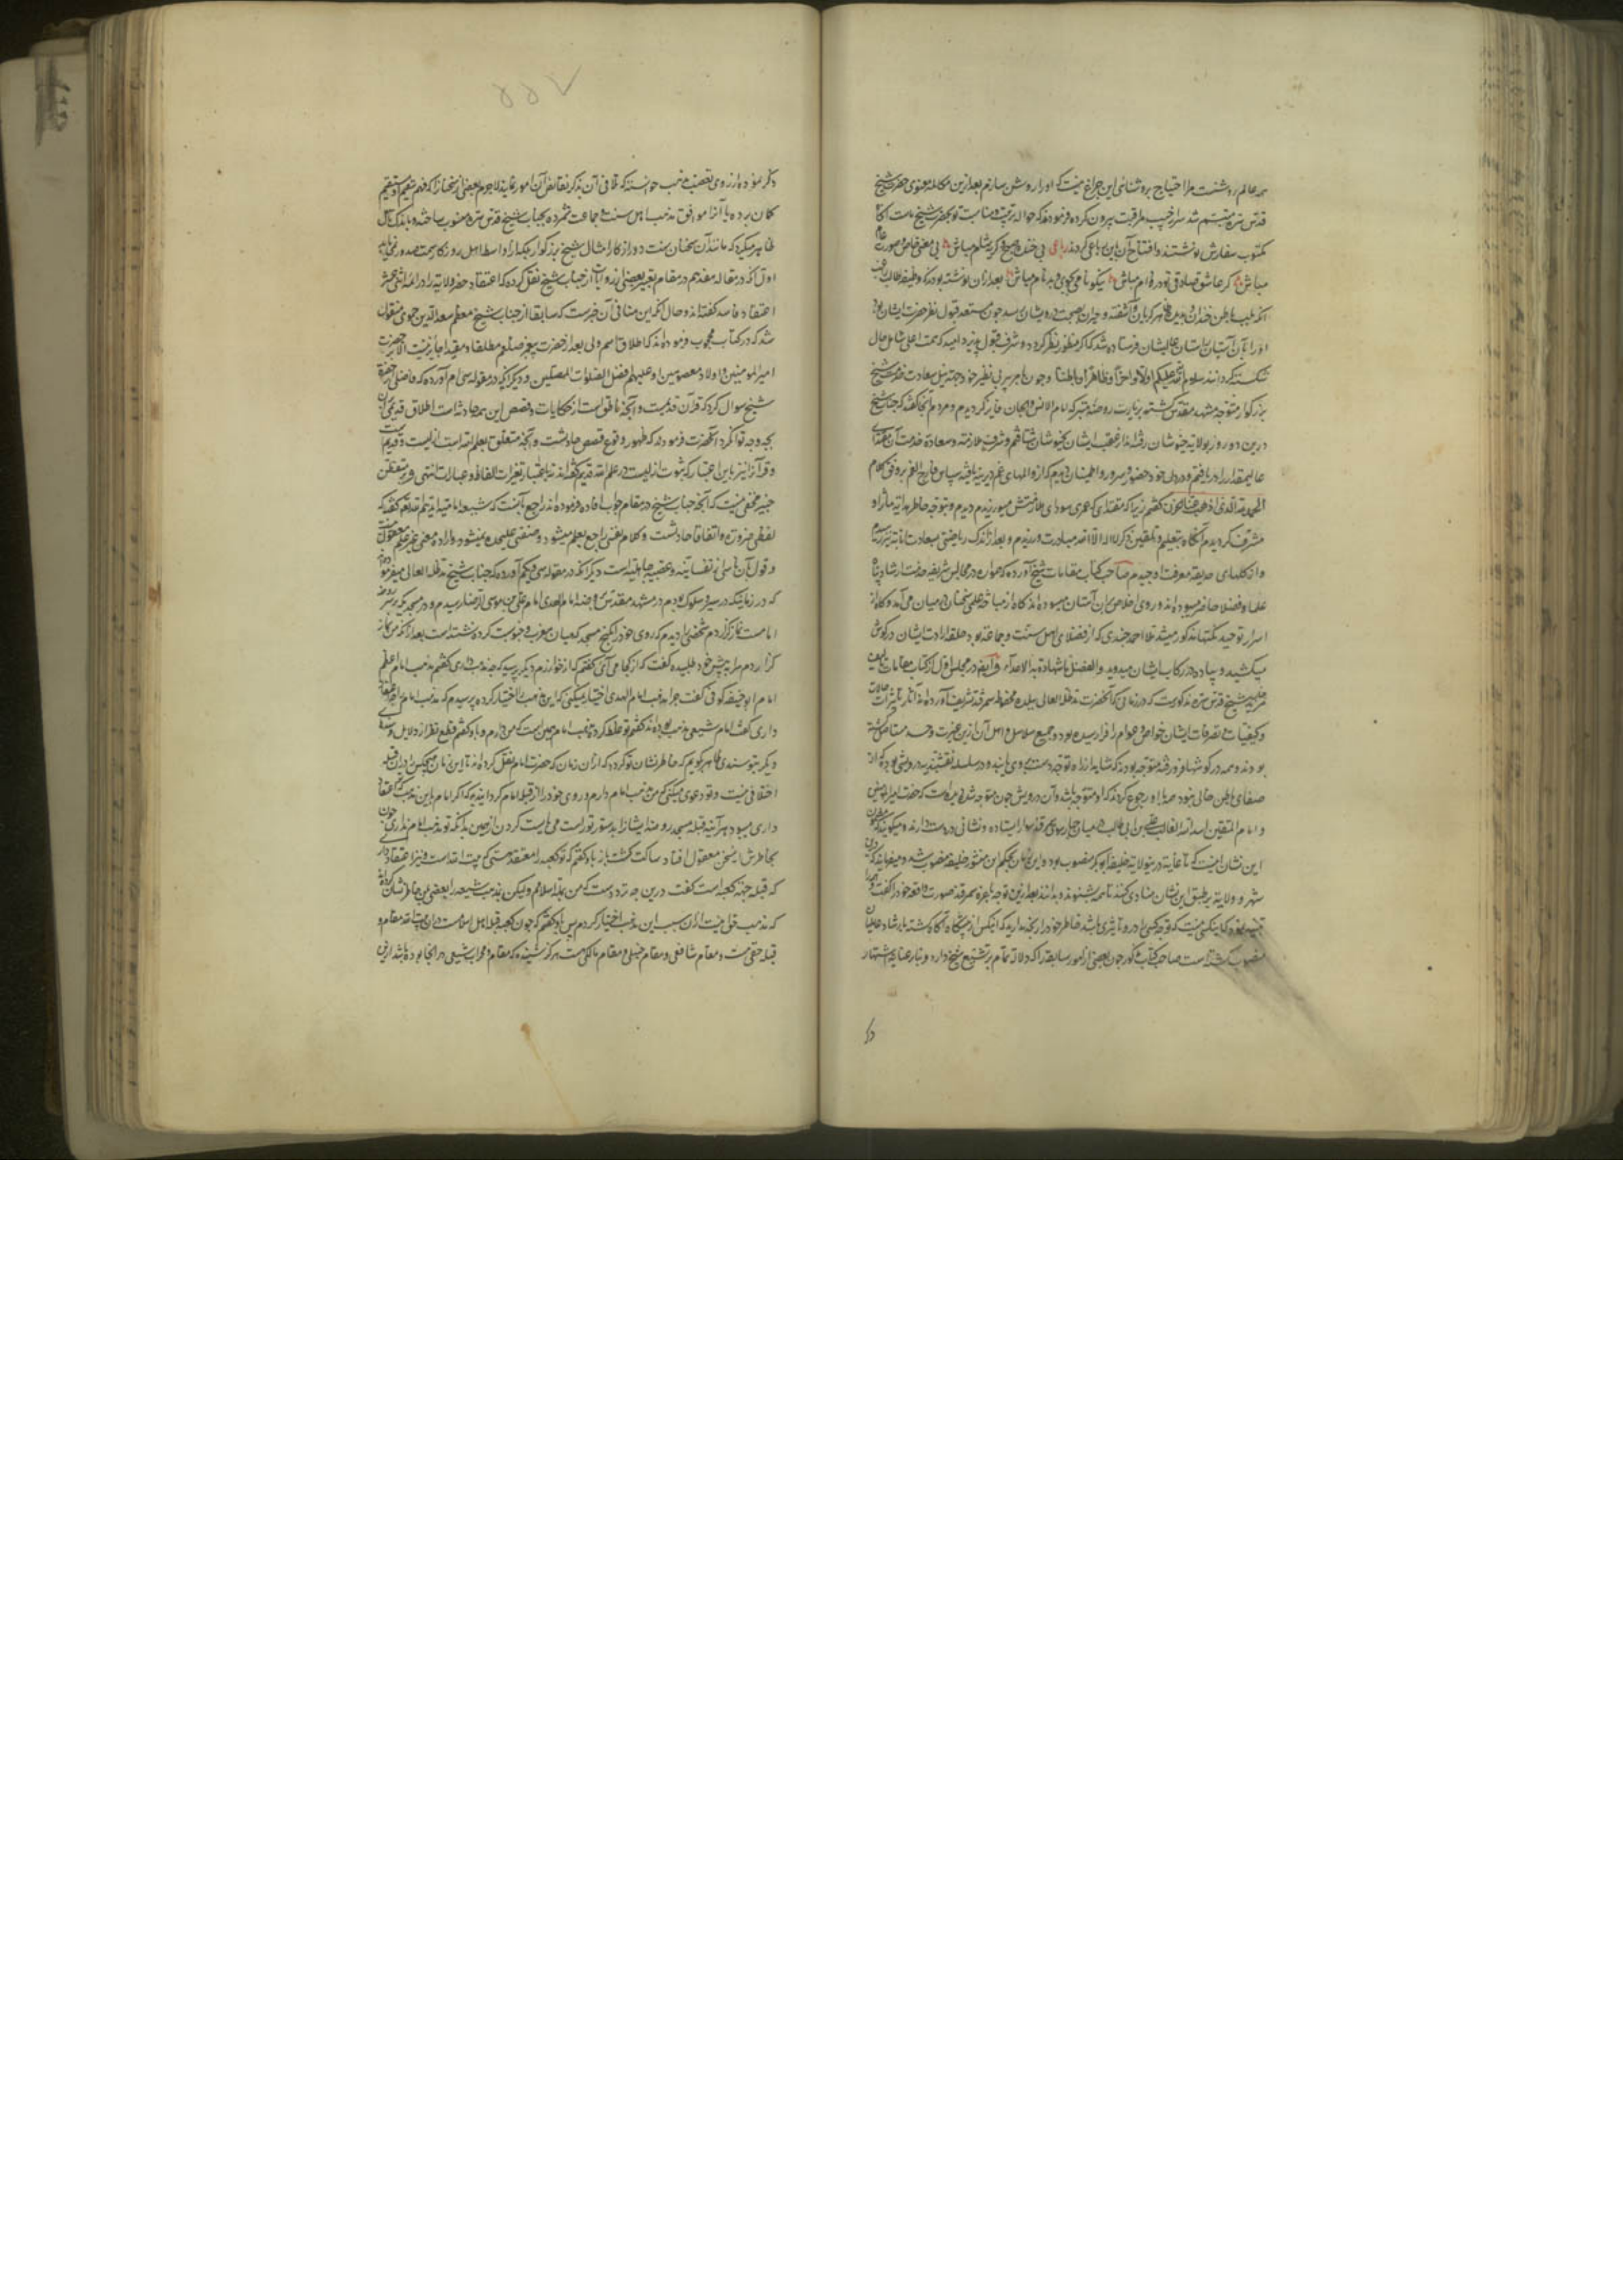 همه عالم روشنست مرا احتیاج بروشنائی این چراغ نیست که اورا روشن سازم بعد ازین مکالمه معنوی حضرت شیخ
قدس سره متبسم شد سر از جیب مراقبت بیرون کرده فرمودند که حواله تربیت و مناسبت تو بحضرت شیخ
مکتوب سفارش نوشتند و افتتاح آن باین رباعی کردند رباعی بی خنده صبح و گریه شام مباش بی معنی خاص و صورت عام
مباش گر عاشق صادقی تو در دام مباش نیکونامی مجوی و بدنام مباش بعد ازان نوشته بودند که وظیفه طالب
آنکه بلب باطن خندان و بدیده ظاهر گریان و آشفته و حیران صحبت درویشان رسد چون مستعد قبول نظر حضرت ایشان بود
اورا بآن آستان عالیشان فرستاده شد که منظور نظر گردد و شرف قبول پذیرد امید که همت اعلی شامل حال
شکسته گردانند سلام الله علیکم اولا و آخرا و ظاهرا و باطنا و چون باجازه پیر بی نظیر خود جهة نیل سعادت خدمت حضرت شیخ
بزرگوار متوجه مشهد مقدس گشته بزیارت روضه متبرکه امام الانس و الجان فایز گردیدم و مردم آنجا گفتند که جناب شیخ
درین دو روز بولایة خبوشان رفته اند از عقب ایشان بخبوشان شتافتم و شرف ملازمت و سعادة خدمت آن مقتدای
عالیمقدار را دریافتم و در دل خود حضور و سرور و اطمینان دیدم که از والهای غم دیرینه یافته بسپاس فارج الغم بر وفق کلام
الحمد لله الذی اذهب عنا الحزن گفتم زیرا که مقتدای که عمری سودای ملازمتش میورزیدم دیدم و بتوجه خاطر هدایة مآثر او
مشرف گردیدم آنگاه بتعلیم و تلقین ذکر لا اله الا الله مبادرت ورزیدم و بعد از اندک ریاضتی بسعادت انابة نیز رسیدم
و از گلهای حدیقه معرفت او چیدم صاحب کتاب مقامات شیخ آورده که همواره در مجالس شریفه خدمت ارشاد پناه
علما و فضلا حاضر میبوده اند و روی اخلاص بران آستان میسوده اند گاه از مباحث علمی سخنان در میان می آمد و گاه از
اسرار توحید نکتها مذکور میشد ملا احمد جندی که از فضلای اهل سنت و جماعة بود حلقه ارادت ایشان در گوش
میکشید و پیاده در رکاب ایشان میدوید و الفضل ما شهدت به الاعداء و ایضا در مجلس اول از کتاب مقامات
شیخ قدس سره مذکورست که در زمانی که آنحضرت مد ظله العالی ببلده محفوظه سمرقند تشریف آورده اند آثار تأثیرات حالات
و کیفیات تصرفات ایشان خواص و عوام را فرا رسیده بود و جمیع سلاسل و اهل آن ازین غیرت و حسد
بودند و همه در گوشها فرو رفته متوجه بودند که شاید از راه توجه دست بروی یابند و در سلسله نقشبندیه درویشی بود که از
صفای باطن خالی نبود همه باو رجوع کردند که او متوجه باشد و آن درویش چون متوجه شد دیده است که حضرت امیر المؤمنین
و امام المتقین اسد الله الغالب علی بن ابی طالب در میان چهار سوی سمرقند سوار ایستاده و نشانی در دست دارند و میگویند که مضمون
این نشان اینست که تا غایة درین ولایة خلیفه ابو بکر منصوب بوده این زمان بحکم این منشور خلیفه منصوب شد و میفرماید که درین
شهر و ولایة بر طبق این نشان منادی کنند تا همه بشنوند و بدانند بعد ازین توجه باعزه سمرقند صورت واقعه خود را گفت و
کسی نیست که توجه کسی را درو تأثیری باشد خاطر خود را رنجه مدارید که اینکس از پیشگاه آگاه گشته بارشاد عالمیان
منصوب گشته است صاحب کتاب مذکور چون بعضی از امور سابقه را که دلالة تمام بر تشیع شیخ دارد و بنابر غایة اشتهار
ذکر
ذکر نموده از روی تعصب مذهب خواسته که تلافی آن بذکر نقایض آن امور نماید لاجرم بعضی از سخنان را که فهم سقیم او مستقیم
گمان برده یا آنرا موافق مذهب اهل سنت و جماعت شمرده بجناب شیخ قدس سره منسوب ساخته و باندک تأمل
ظاهر میگردد که مانند آن سخنان سست دور از کار از امثال شیخ بزرگوار بلکه از اواسط اهل روزگار سمت صدور نمی یابد
اول آنکه در مقاله هفدهم در مقام تعبیر بعضی از روایات از جناب شیخ نقل کرده که اعتقاد حصر ولایة را در ائمه اثنی عشر
اعتقاد فاسد گفته اند و حال آنکه این منافی آن خبرست که سابقا از جناب شیخ معظم سعد الدین حموی منقول
شد که در کتاب محبوب فرموده اند که اطلاق اسم ولی بعد از حضرت پیغمبر صلعم مطلقا و مقیدا جایز نیست الا بر حضرت
امیر المومنین و اولاد معصومین او علیهم افضل الصلوات المصلین و دیگر آنکه در مقوله سی ام آورده که فاضلی از حضرت
شیخ سوال کرد که قرآن قدیمست و آنچه ناطق است از حکایات و قصص این همه حادث است اطلاق قدیم بر آن
بچه وجه توان کرد آنحضرت فرمودند که ظهور و وقوع قصص حادثست و آنچه متعلق بعلم الله است ازلیست و قدیم است
و قرآنرا نیز باین اعتبار که ثبوت ازلیست در علم الله قدیم گفته اند نه باعتبار تغیرات الفاظ و عبارات انتهی و بر متفطن
خبیر مخفی نیست که آنچه جناب شیخ در مقام جواب افاده فرموده اند راجع بآنست که شیعه امامیه ایدهم الله گفته اند که
لفظی ضرورة و اتفاقا حادثست و کلام نفسی راجع بعلم میشود و صفتی علیحده نمیشود و اراده معنی غیر علم معقول نیست
و قول بآن ناشی از نفسانیة و عصبیة جاهلیة است دیگر آنکه در مقوله سی و یکم آورده که جناب شیخ مد ظله العالی میفرمود
که در زمانیکه در سیر و سلوک بودم در مشهد مقدس بروضه امام الهدی امام علی بن موسی الرضا رسیدم و در مسجدیکه بر سر روضه
امامست نماز گزاردم شخصی را دیدم که روی خود را بکنج مسجد که میان مغرب و جنوبست کرده نشسته است بعد از آنکه من نماز
گزاردم مرا به پیش خود طلبیده گفت که از کجا می آئی گفتم که از خوارزم دیگر پرسید که چه مذهب داری گفتم مذهب امام اعظم
امام ابو حنیفه کوفی گفت چرا مذهب امام الهدی اختیار نمیکنی که این مذهب را اختیار کرده پرسیدم که مذهب امام را چه اعتقاد
داری گفت امام شیعی مذهب بوده اند گفتم تو غلط کرده مذهب امام همین است که من دارم و باو گفتم قطع نظر از دلایل
دیگر بتو سندی ظاهر بگویم که خاطر نشان تو گردد که ازان زمان که حضرت امام نقل کرده اند تا این زمان هیچکس را درین قبله
اختلافی نیست و تو دعوی میکنی که من مذهب امام دارم و روی خود را از قبله امام گردانیده که اگر امام باین مذهب که تو اعتقاد
داری میبود هر آینه قبله مسجد روضه ایشانرا بدستور تو راست می بایست کردن ازهمین بدانکه تو مذهب امام نداری چون
بخاطرش این سخن معقول افتاد ساکت گشت باز باو گفتم که تو کعبه را معتقد هستی گفت بیت الله است و نیز اعتقاد دارم
که قبله جهة کعبه است گفت درین چه تردد است که من به اسلامم ولیکن مذهب شیعه را بعضی بمن خاطر نشان کرده اند
که مذهب حق اینست ازان سبب این مذهب اختیار کردم پس باو گفتم که چون کعبه قبله اهل اسلامست و دران بیت الله مقام و
قبله حنفی هست و مقام شافعی و مقام حنبلی و مقام مالکی هست هرگز نشنیده که مقام و محراب شیعی در آنجا بوده باشد ازین